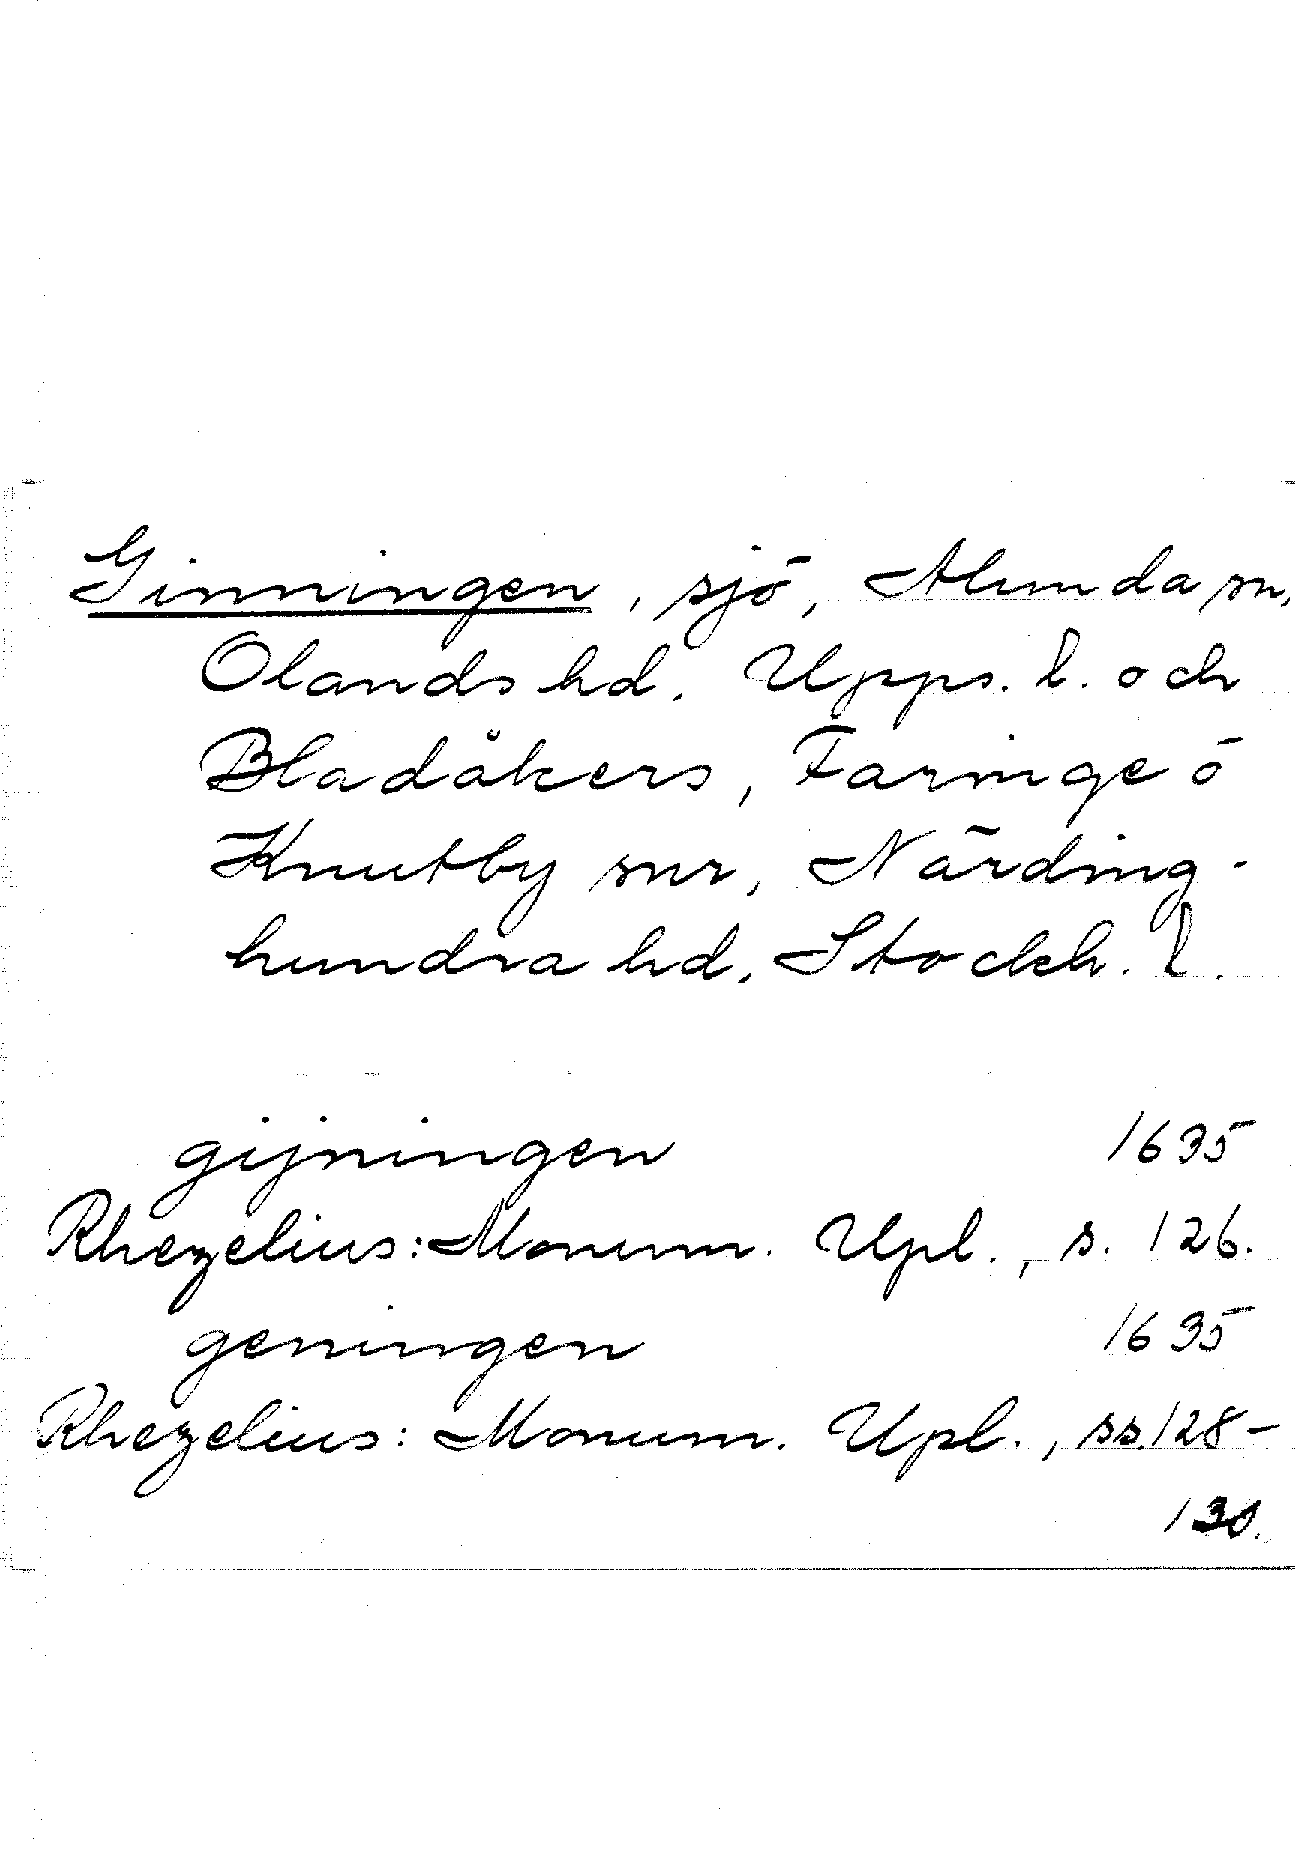 Ginningen, sjö, Alunda sn,
Olands hd. Upps. l. och
Bladåkers, Faringe o
Knutby snr, Närding-
hundra hd. Stockh. l.
gijningen 1635
Rhezelius: Monum. Upl., s. 126.
geningen 1635
Rhezelius: Monum. Upl., ss. 128-
130.